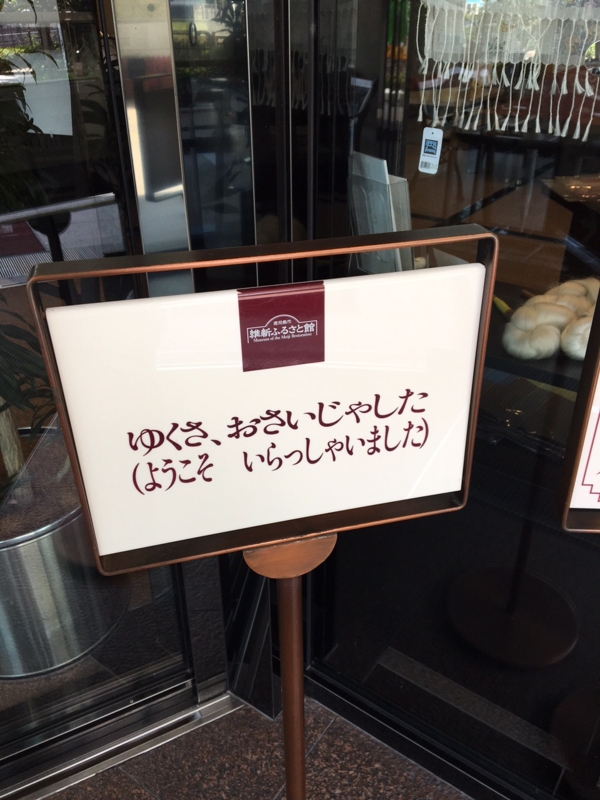 鹿児島市
維新ふるさと館
Museum of the Meiji Restoration
ゆくさ、おさいじゃした
(ようこそ　いらっしゃいました)